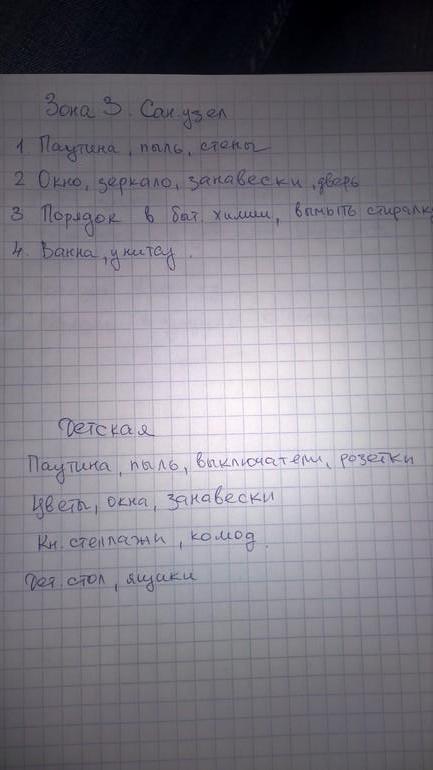 Зона 3. Сан.узел
1 Паутина, пыль, стены
2 Окно, зеркало, занавески, дверь
3 Порядок в быт. химии, вымыть стиралку
4. Ванна, унитаз.
Детская
Паутина, пыль, выключатели, розетки
Цветы, окна, занавески
Кн. стеллажи, комод.
Дет. стол, ящики